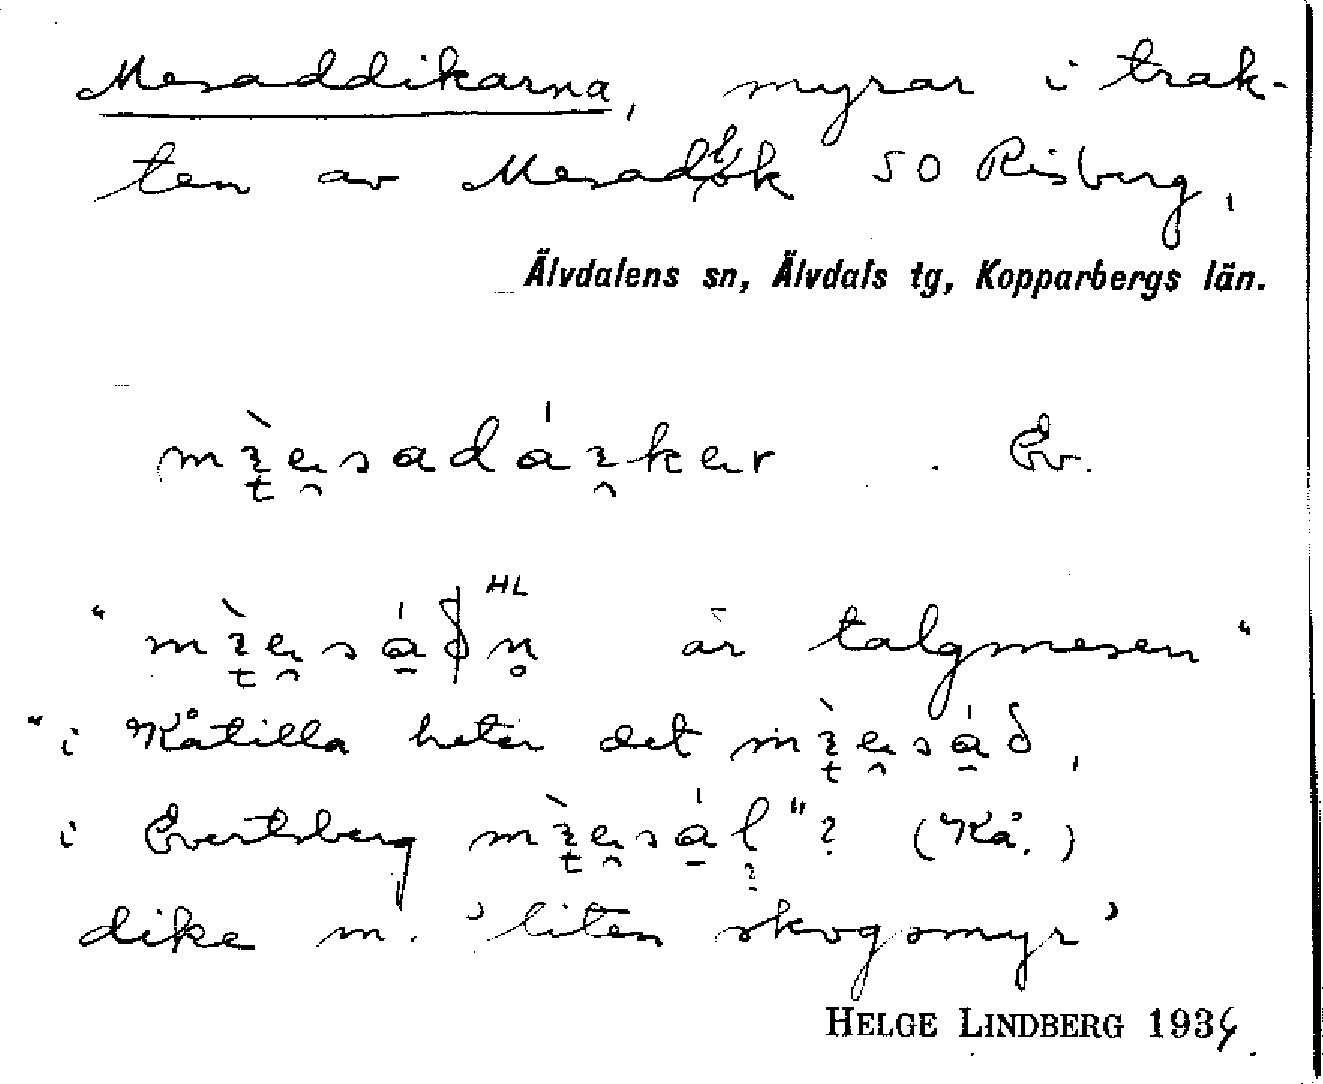 Mesaddikarna, myrar i trak-
ten av SO Risberg,
Älvdalens sn, Älvdals tg, Kopparbergs län.
Ev.
HL
" är talgmesen"
"i Kåtilla heter det
i Evertsberg "? (Kå.)
dike m. 'liten skogsmyr'
HELGE LINDBERG 1934.